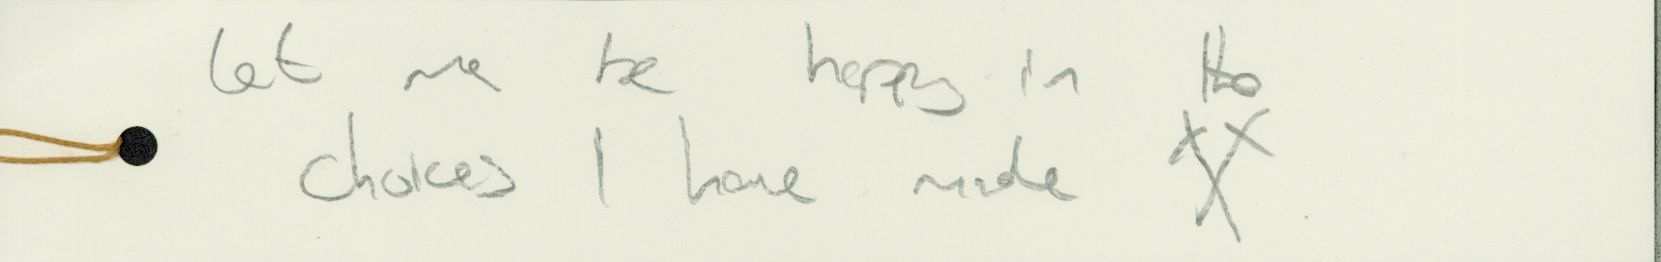 Let me be happy in the
choices I have made XXX